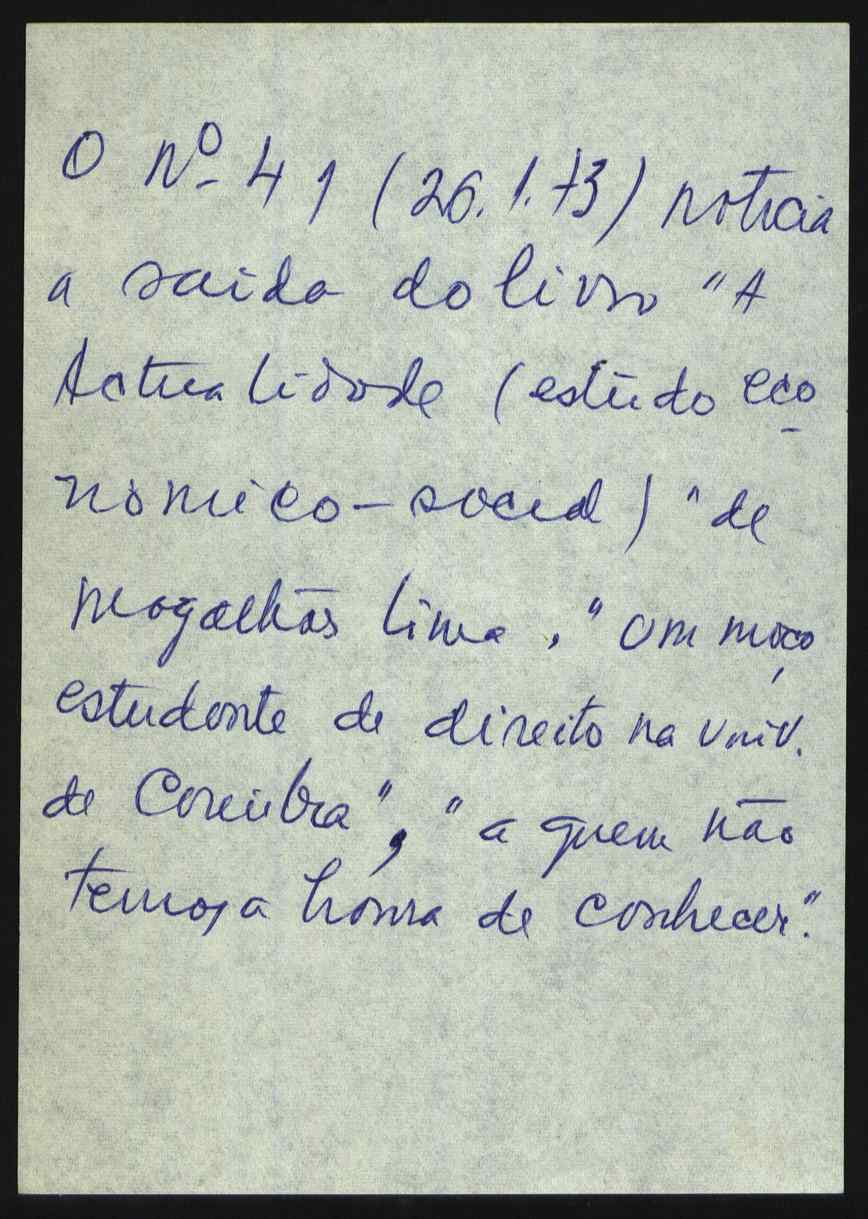 O nº 41 (26.1.73) noticia
a saida do livro "A
Actualidade (estudo eco
nómico-social)" de
Magalhães Lima, "um moço
estudante de direito na Univ.
de Coimbra", "a quem não
temos a honra de conhecer."